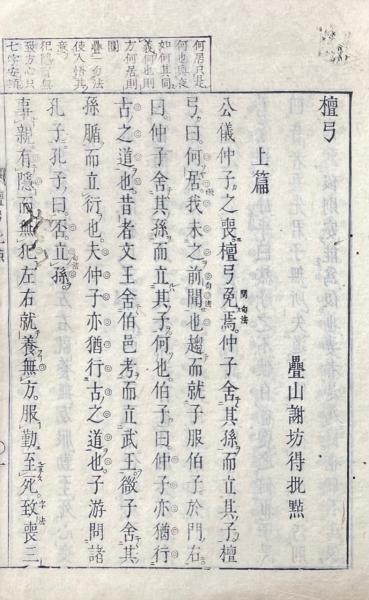 檀弓
疊山謝坊得批點
上篇
公儀仲子之喪檀弓免焉仲子舍其孫而立其子檀
弓曰何居我未之前聞也趨而就子服伯子於門右
曰仲子舍其孫而立其子何也伯子曰仲子亦猶行
古之道也昔者文王舍伯邑考而立武王微子舍其
孫腯而立衍也夫仲子亦猶行古之道也子游問諸
孔子孔子曰否立孫
事親有隱而無犯左右就養無方服勤至死致喪三
何居只是
如何其同
義何也則
方何居則
圓
疊一句法
使人悟其
意
七字安頓